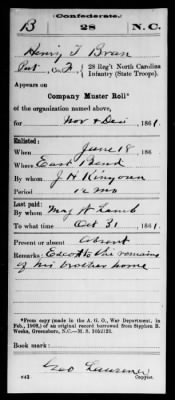 Confederate
B 28 N.C.
Henry T Bran
Pvt, Co. F, 28 Reg't North Carolina
Infantry (State Troops).
Appears on
Company Muster Roll*
of the organization named above,
for Nov & Dec, 1861.
Enlisted:
When June 18, 186 .
Where East Bend
By whom J. H. Kinyoun
Period 12 mo
Last paid:
By whom Maj A Lamb
To what time Oct 31, 1861.
Present or absent Absent
Remarks: Escort to the remains
of his brother home
*From copy (made in the A. G. O., War Department, in
Feb., 1909,) of an original record borrowed from Stephen B.
Weeks, Greensboro, N.C.—M. S.
Book mark:
(42) Geo
Copyist.